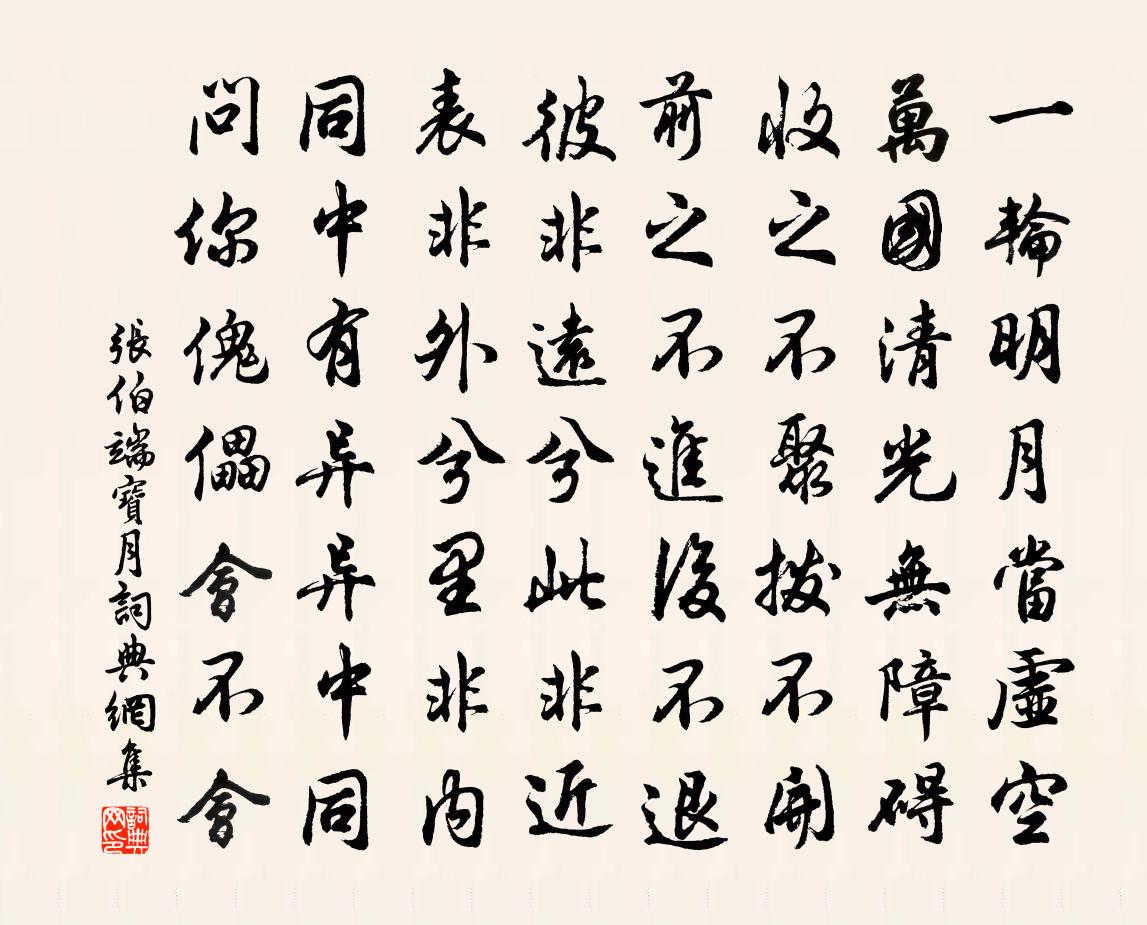 一輪明月當虛空
萬國清光無障碍
收之不聚撥不開
前之不進後不退
彼非遠兮此非近
表非外兮里非内
同中有异异中同
問你傀儡會不會
張伯端寶月詞典網集
詞典网印